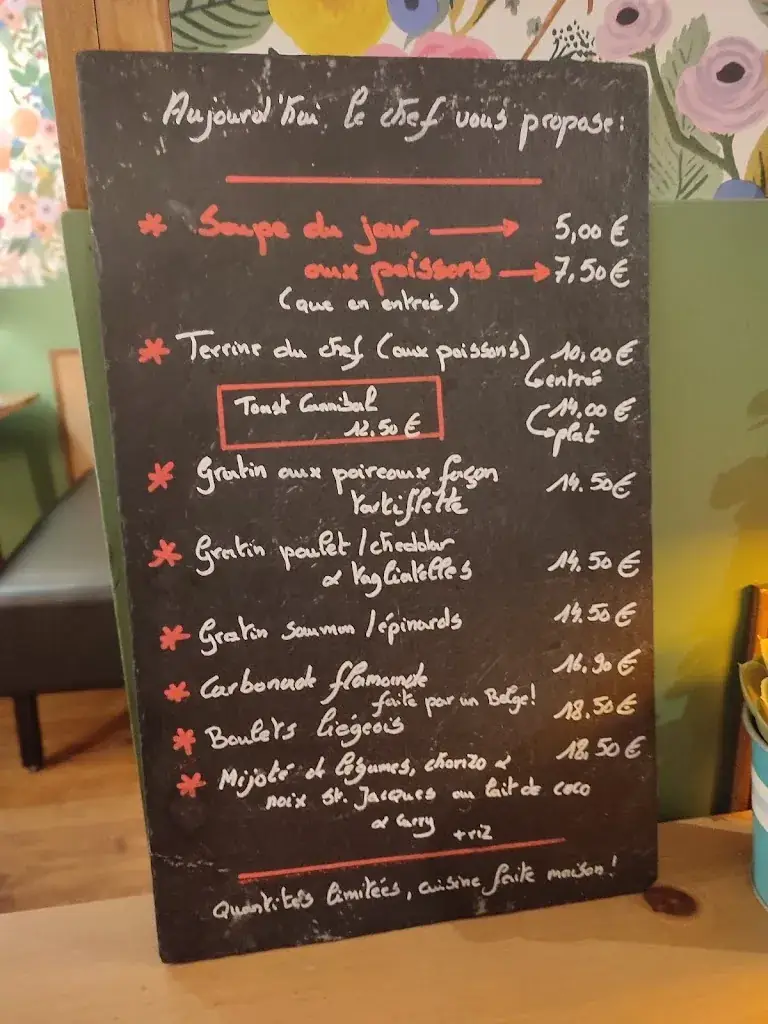 Aujourd'hui le chef vous propose:
* Soupe du jour → 5,00 €
aux poissons → 7,50 €
(que en entrée)
* Terrine du chef (aux poissons) 10,00 €
↳ entrée
Toast Cannibal 14,00 €
12.50 € ↳ plat
* Gratin aux poireaux façon 14.50 €
Tartiflette
* Gratin poulet / cheddar
& Tagliatelles 14.50 €
* Gratin saumon / épinards 14.50 €
* Carbonade flamande 16.90 €
faite par un Belge!
* Boulets liégeois 18.50 €
* Mijoté de légumes, chorizo & 18.50 €
noix St. Jacques au lait de coco
& curry + riz
Quantités limitées, cuisine faite maison!